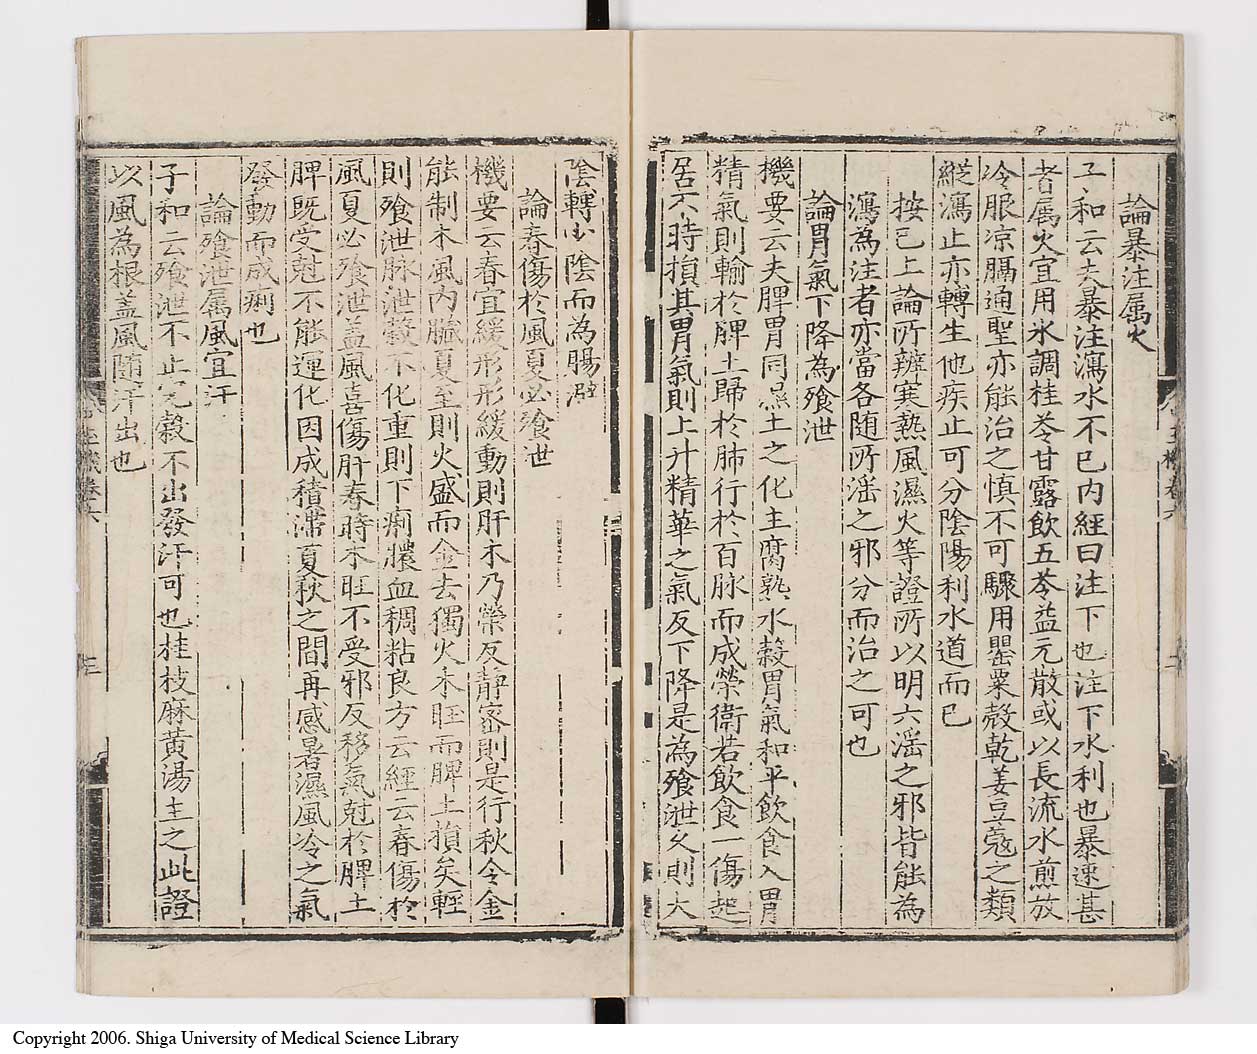 論暴注属火
子和云夫暴注瀉水不已内經曰注下也注下水利也暴速甚
者属火宜用水調桂苓甘露飲五苓益元散或以長流水煎放
冷服凉膈通聖亦能治之慎不可驟用罌粟殻乾姜豆蔻之類
縱瀉止亦轉生他疾止可分陰陽利水道而已
按已上論所辨寒熱風濕火等證所以明六淫之邪皆能為
瀉為注者亦當各随所淫之邪分而治之可也
論胃氣下降為飱泄
機要云夫脾胃同湿土之化主腐熟水穀胃氣和平飲食入胃
精氣則輸於脾土歸於肺行於百脉而成榮衛若飲食一傷起
居不時損其胃氣則上升精華之氣反下降是為飱泄久則太
陰轉少陰而為腸澼
論春傷於風夏必飱泄
機要云春宜緩形形緩動則肝木乃榮反静密則是行秋令金
能制木風内臓夏至則火盛而金去獨火木旺而脾土損矣輕
則飱泄脉泄穀不化重則下痢膿血稠粘良方云經云春傷於
風夏必飱泄盖風喜傷肝春時木旺不受邪反移氣尅於脾土
脾既受尅不能運化因成積滯夏秋之間再感暑濕風冷之氣
發動而成痢也
論飱泄属風宜汗
子和云飱泄不止完穀不出發汗可也桂枝麻黄湯主之此證
以風為根盖風随汗出也
玉機卷六
玉機卷六
Copyright 2006. Shiga University of Medical Science Library